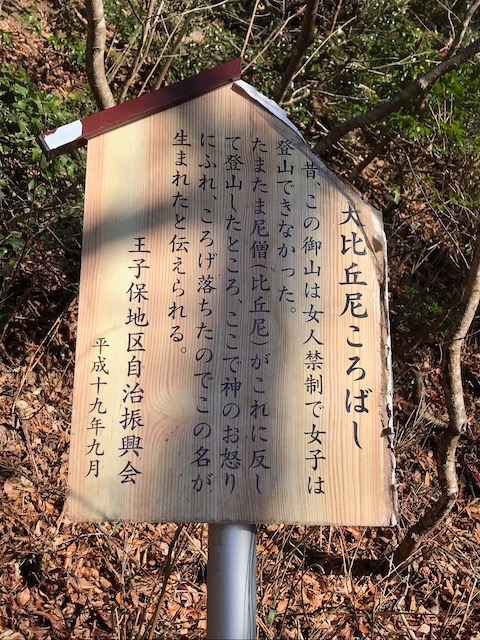 大比丘尼ころばし
昔、この御山は女人禁制で女子は
登山できなかった。
たまたま尼僧(比丘尼)がこれに反し
て登山したところ、ここで神のお怒り
にふれ、ころげ落ちたのでこの名が
生まれたと伝えられる。
王子保地区自治振興会
平成十九年九月